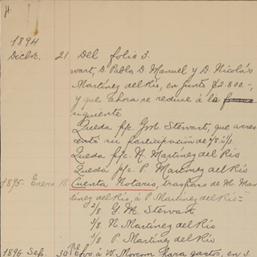 1894
Decbre. 21 Del folio 3.
wart, D. Pablo, D. Manuel y D. Nicolás
Martínez del Río, en junto $2.800 -,
y que ahora se reduce á la
siguiente
Queda p/c G.M. Stewart, que
su participación de
Queda p/c N. Martínez del Río
Queda p/c P. Martínez del Río
1895 Enero 18 Cuenta Notario, traspaso de M. Mar
tínez del Río á P. Martínez del Río =
2/8 G. M. Stewart
3/8 N. Martínez del Río
3/8 P. Martínez del Río
1896 Sep. 30 para gastos, en